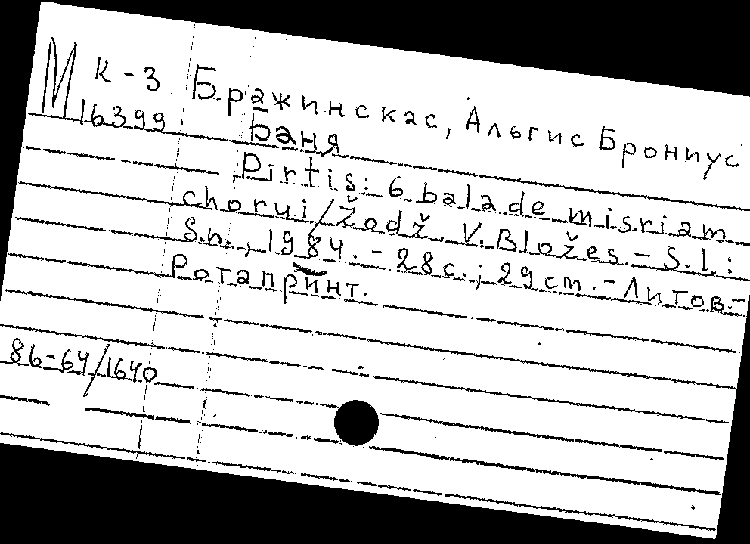 М к-3
16399
Бражинскас, Альгис Брониус
Баня
Pirtis: 6 balade misriam
chorui/Žodž. V. Bložes.- S.l.:
S.n., 1984.- 28 с.; 29 cm.- Литов.-
Ротапринт.
86-64/1640